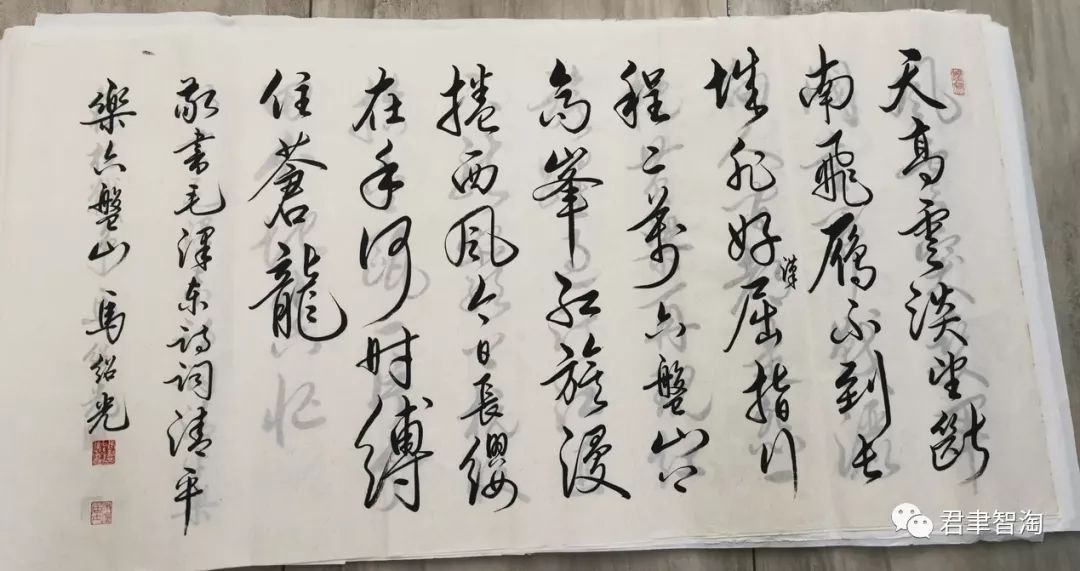 天高雲淡望斷
南飛雁不到长
城非好漢屈指行
程二萬六盤山上
高峯红旗漫
捲西風今日長纓
在手何时縛
住蒼龍
敬書毛澤东诗词清平
樂六盤山 馬紹光
君聿智淘